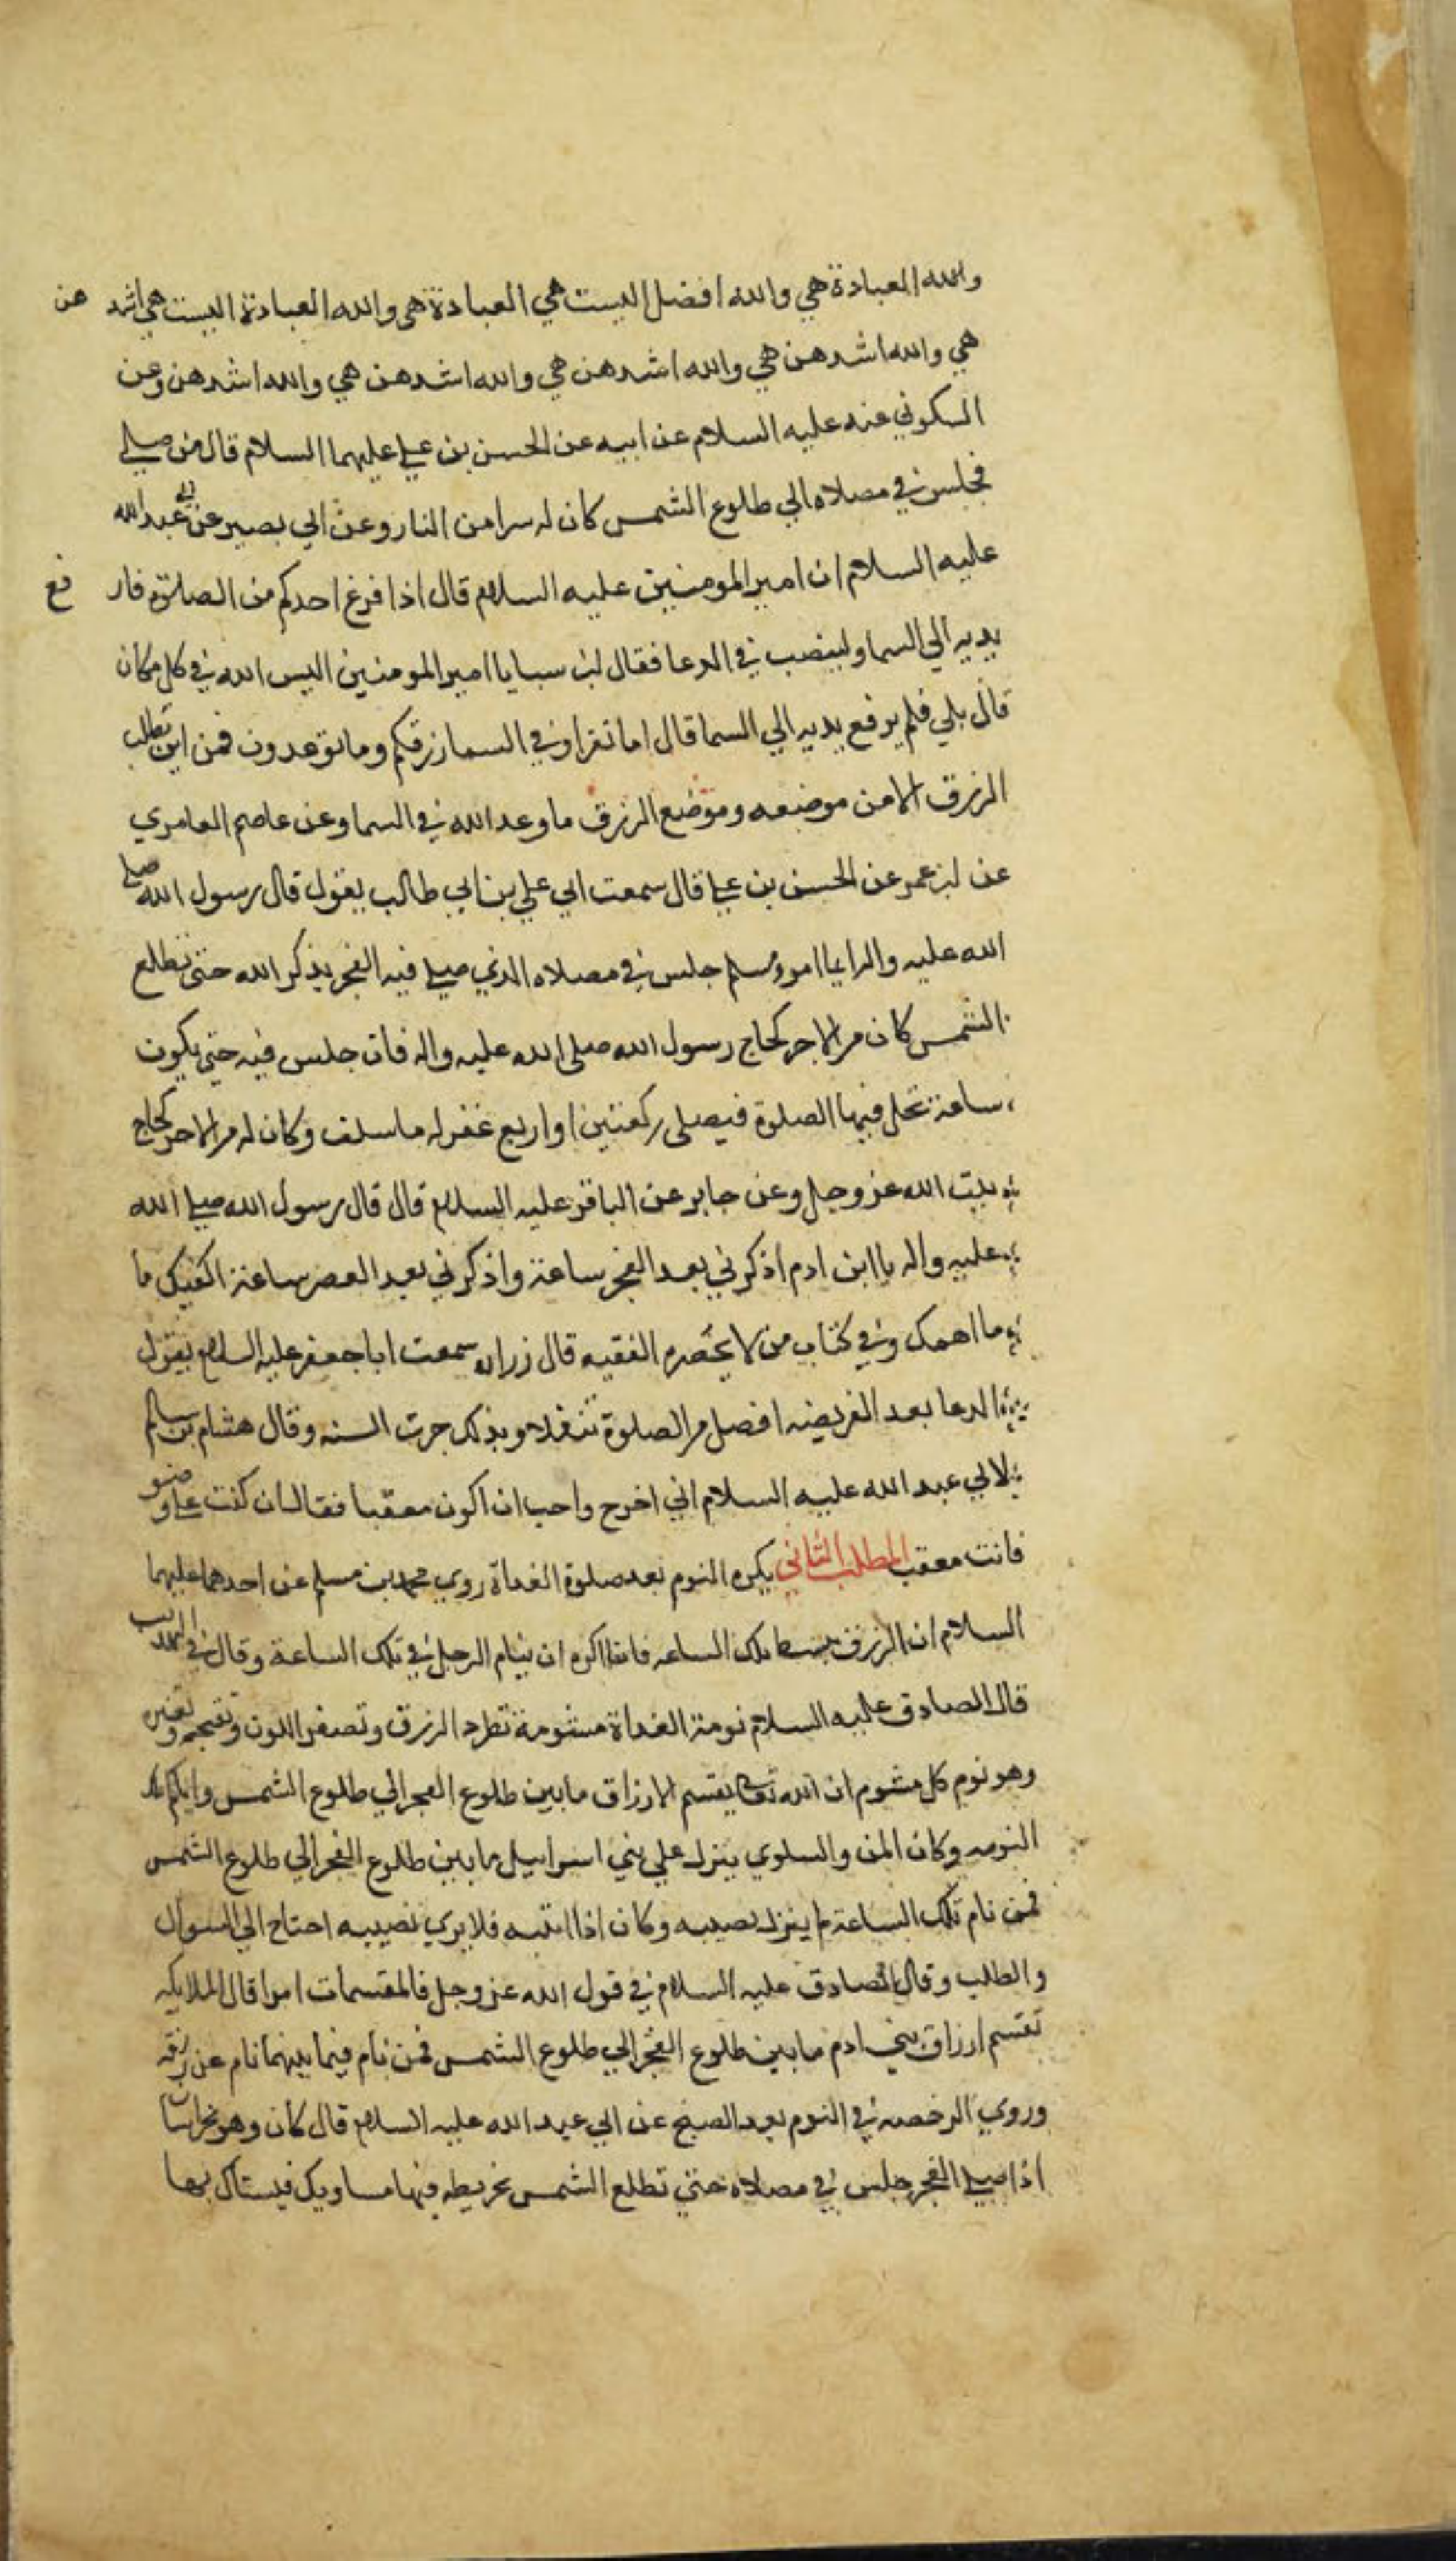 والله العبادة هي والله افضل اليست هي العبادة هي والله العبادة اليست هي اشد هن
هي والله اشد هن هي والله اشد هن هي والله اشد هن هي والله اشد هن وعن
السكوني عنه عليه السلام عن ابيه عن الحسن بن علي عليهما السلام قال من صلي
فجلس في مصلاه الي طلوع الشمس كان له سترا من النار وعن ابي بصير عن ابي عبد الله
عليه السلام ان امير المومنين عليه السلام قال اذا فرغ احدكم من الصلوة فار فع
يديه الي السما ولينصب في الدعا فقال ابن سبا يا امير المومنين اليس الله في كل مكان
قال بلي فلم يرفع يديه الي السما قال اما تقرا وفي السما رزقكم وما توعدون فمن اين نطلب
الرزق الا من موضعه وموضع الرزق ما وعد الله في السما وعن عاصم العامري
عن ابن عمر عن الحسن بن علي قال سمعت ابي علي بن ابي طالب يقول قال رسول الله صلي
الله عليه واله ايما امرؤ مسلم جلس في مصلاه الذي صلي فيه الفجر يذكر الله حتي تطلع
الشمس كان من الاجر كحاج رسول الله صلي الله عليه واله فان جلس فيه حتي يكون
ساعة تحل فيها الصلوة فيصلي ركعتين او اربع غفر له ما سلف وكان له من الاجر كحاج
بيت الله عز وجل وعن جابر عن الباقر عليه السلام قال قال رسول الله صلي الله
عليه واله يا ابن ادم اذكرني بعد الفجر ساعة واذكرني بعد العصر ساعة اكفيك ما
ما اهمك وفي كتاب من لا يحضره الفقيه قال زراره سمعت ابا جعفر عليه السلام يقول
الدعا بعد الفريضه افضل من الصلوة تنفلا وبذلك جرت السنه وقال هشام بن سالم
لابي عبد الله عليه السلام اني اخرج واحب ان اكون معقبا فقال ان كنت علي وضو
فانت معقب المطلب الثاني يكره النوم بعد صلوة الغداة روي محمد بن مسلم عن احدهما عليهما
السلام ان الرزق يبسط تلك الساعه فانا اكره ان ينام الرجل في تلك الساعة وقال في التهذيب
قال الصادق عليه السلام نومة الغداة مشومة تطرد الرزق وتصفر اللون وتقبحه وتغيره
وهو نوم كل مشوم ان الله تعالي يقسم الارزاق ما بين طلوع الفجر الي طلوع الشمس واياكم وتلك
النومه وكان المن والسلوي ينزل علي بني اسراييل ما بين طلوع الفجر الي طلوع الشمس
فمن نام تلك الساعة لم ينزل نصيبه وكان اذا انتبه فلا يري نصيبه احتاج الي السوال
والطلب وقال الصادق عليه السلام في قول الله عز وجل فالمقسمات امرا قال الملايكه
تقسم ارزاق بني ادم ما بين طلوع الفجر الي طلوع الشمس فمن نام فيما بينهما نام عن رزقه
وروي الرخصه في النوم بعد الصبح عن ابي عبد الله عليه السلام قال كان وهو بخراسان
اذا صلي الفجر جلس في مصلاه حتي تطلع الشمس بخريطه فيها مساويك فيستاك بها